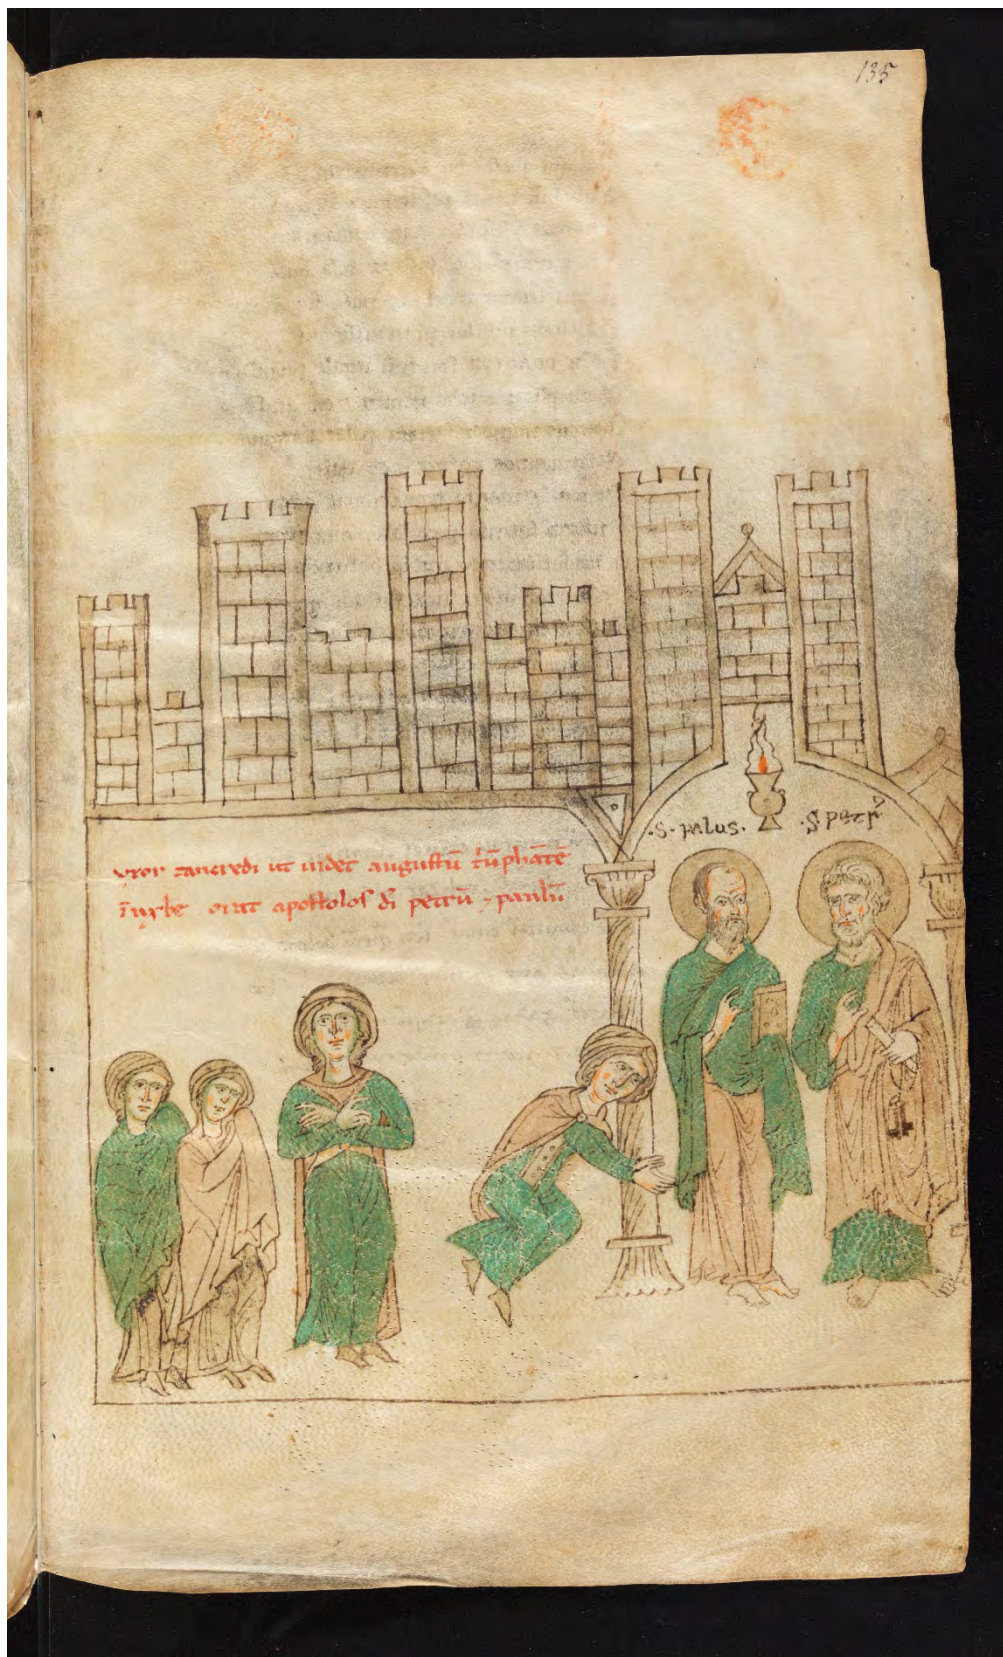 135
.S. paLus. .S. petrˀ
vxor tancredi ut uidet augustū t̄ūphātē
ī urbe orat apostolos dī petrū ⁊ paulū